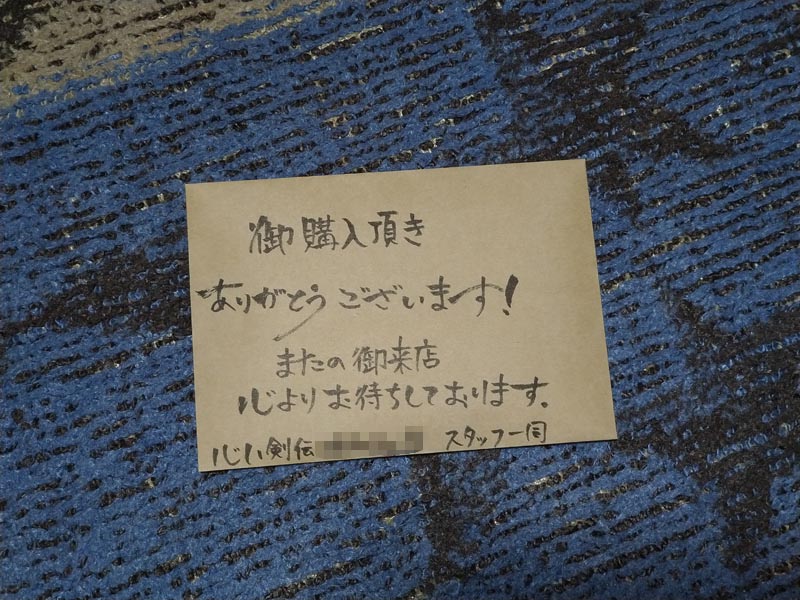 御購入頂き
ありがとうございます!
またの御来店
心よりお待ちしております。
心い剣伝 スタッフ一同